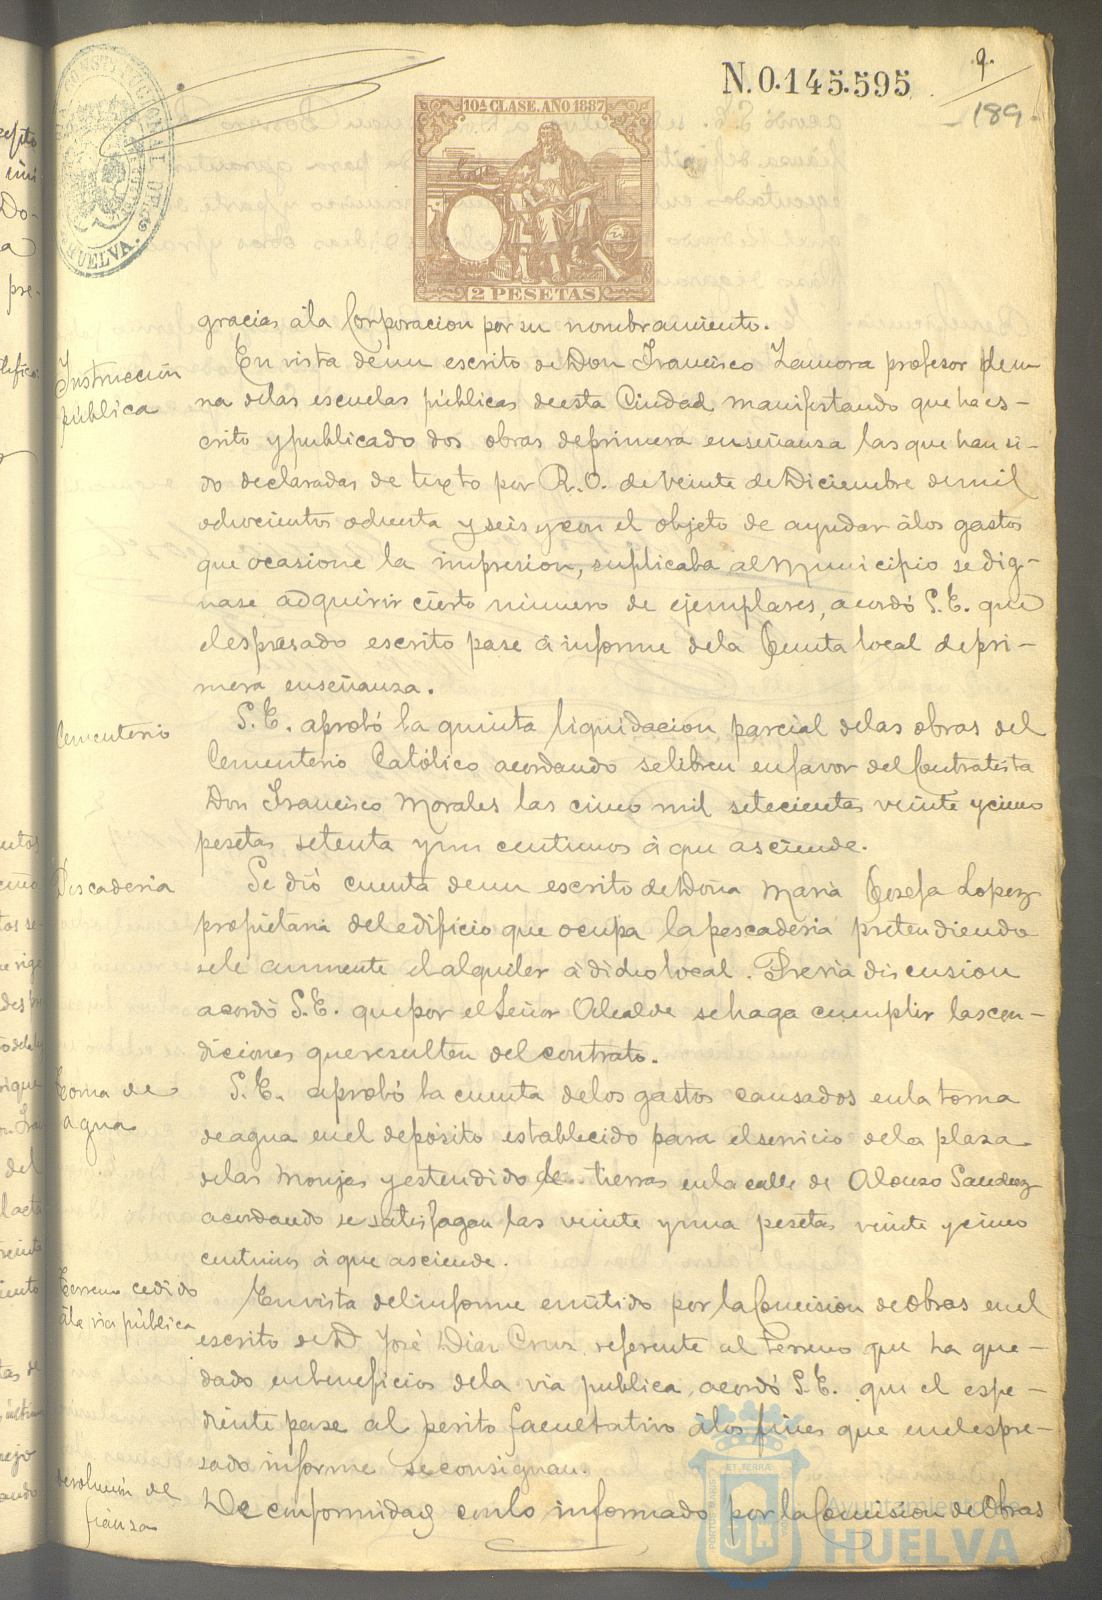 N.0.145.595
9.
189
10ª CLASE. AÑO 1887
2 PESETAS
CONSTITUCIONAL DE
HUELVA.
gracias á la Corporacion por su nombramiento.
Instrucción
pública
En vista de un escrito de Don Francisco Zamora profesor de u-
na de las escuelas públicas de esta Ciudad manifestando que ha es-
crito y publicado dos obras de primera enseñanza las que han si-
do declaradas de texto por R. O. de veinte de Diciembre de mil
ochocientos ochenta y seis y con el objeto de ayudar á los gastos
que ocasione la impresion, suplicaba al Municipio se dig-
nase adquirir cierto número de ejemplares, acordó S. E. que
el espresado escrito pase á informe de la Junta local de pri-
mera enseñanza.
Cementerio
S. E. aprobó la quinta liquidacion parcial de las obras del
Cementerio Católico acordando se libren en favor del Contratista
Don Francisco Morales las cinco mil setecientas veinte y cinco
pesetas setenta y un centimos á que asciende.
Pescaderia
Se dió cuenta de un escrito de Doña Maria Josefa Lopez
propietaria del edificio que ocupa la pescaderia pretendiendo
se le aumente el alquiler á dicho local. Previa discusion
acordó S. E. que por el Señor Alcalde se haga cumplir las con-
diciones que resulten del contrato.
Toma de
agua
S. E. aprobó la cuenta de los gastos causados en la toma
de agua en el depósito establecido para el servicio de la plaza
de las Monjas y estendido de tierras en la calle de Alonso Sanchez
acordando se satisfagan las veinte y una pesetas veinte y cinco
centimos á que asciende.
Terreno cedido
á la via pública
En vista del informe emitido por la Comision de Obras en el
escrito de D. José Diaz Cruz referente al terreno que ha que-
dado en beneficios de la via publica, acordó S. E. que el espe-
diente pase al perito facultativo á los fines que en el espre-
sado informe se consignan.
devolución de
fianza
De conformidad con lo informado por la Comision de Obras
Ayuntamiento de
HUELVA